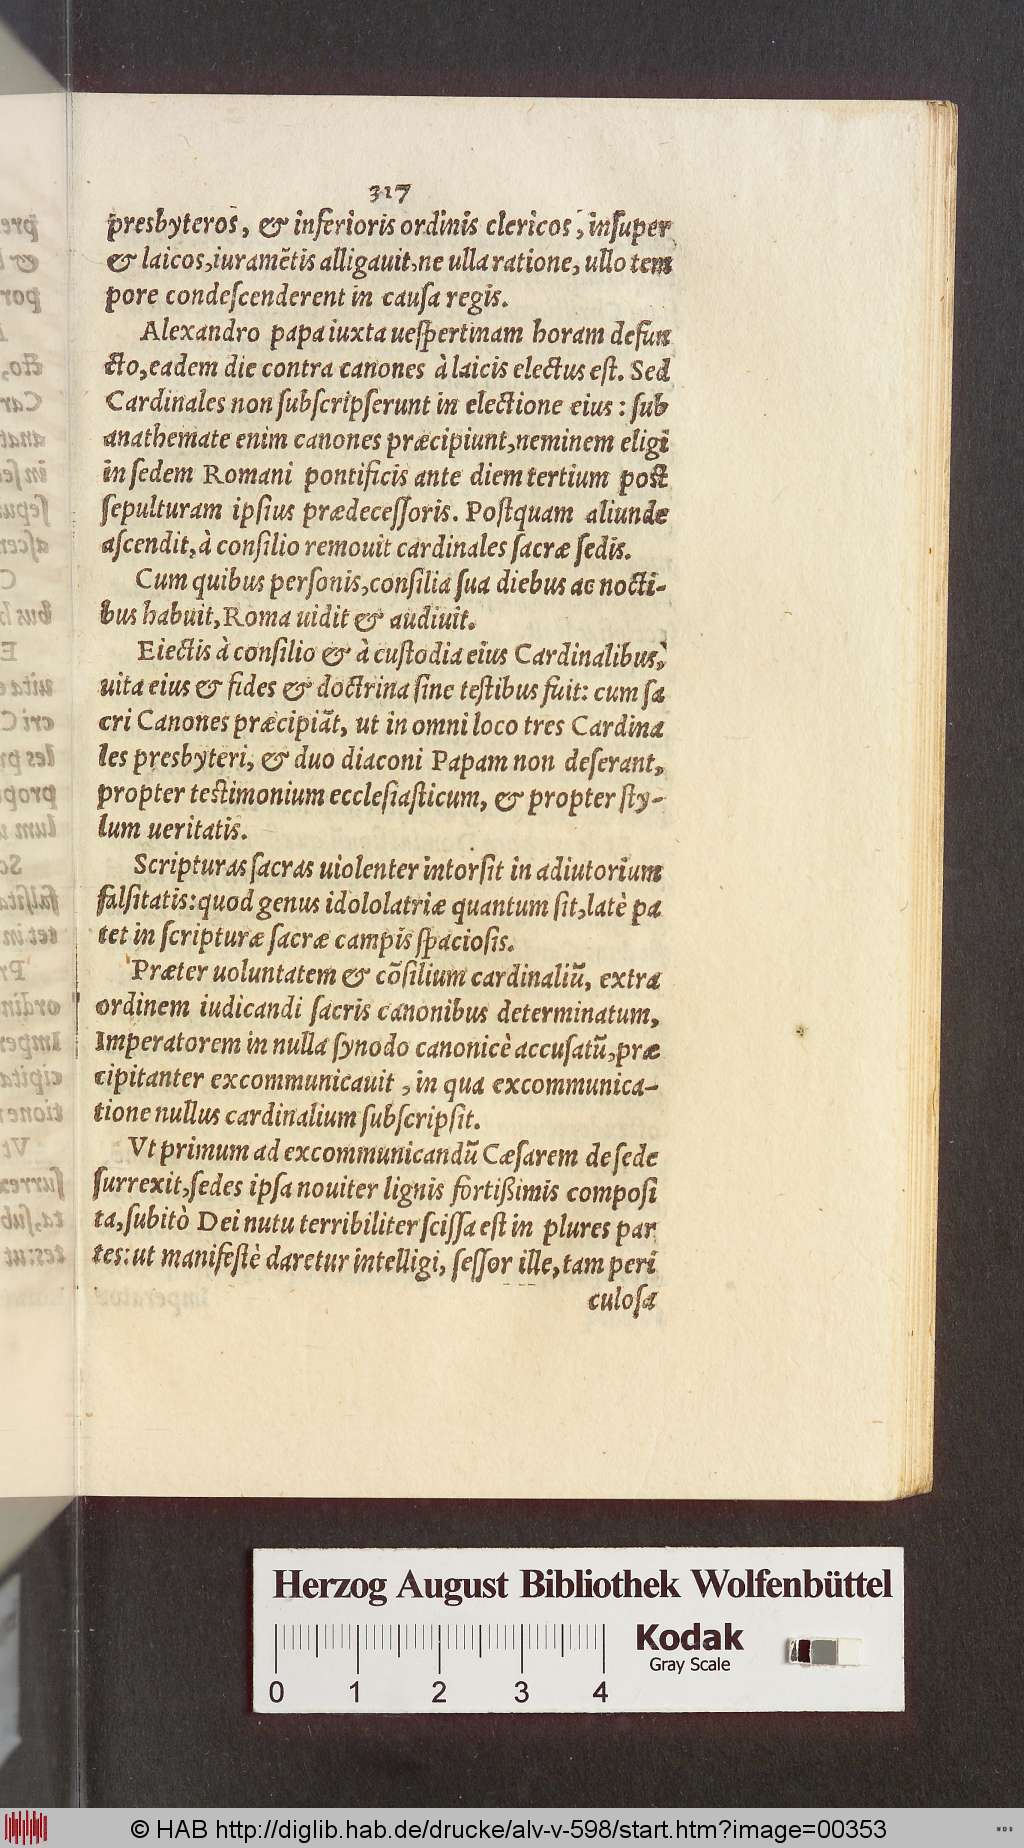 317
presbyteros, & inferioris ordinis clericos, insuper
& laicos, iuramētis alligauit, ne ulla ratione, ullo tem
pore condescenderent in causa regis.
Alexandro papa iuxta uespertinam horam defun
cto, eadem die contra canones à laicis electus est. Sed
Cardinales non subscripserunt in electione eius: sub
anathemate enim canones præcipiunt, neminem eligi
in sedem Romani pontificis ante diem tertium post
sepulturam ipsius prædecessoris. Postquam aliunde
ascendit, à consilio remouit cardinales sacræ sedis.
Cum quibus personis, consilia sua diebus ac nocti-
bus habuit, Roma uidit & audiuit.
Eiectis à consilio & à custodia eius Cardinalibus,
uita eius & fides & doctrina sine testibus fuit: cum sa
cri Canones præcipiāt, ut in omni loco tres Cardina
les presbyteri, & duo diaconi Papam non deserant,
propter testimonium ecclesiasticum, & propter sty-
lum ueritatis.
Scripturas sacras uiolenter intorsit in adiutorium
falsitatis: quod genus idololatriæ quantum sit, latè pa
tet in scripturæ sacræ campis spaciosis.
Præter uoluntatem & cōsilium cardinaliū, extra
ordinem iudicandi sacris canonibus determinatum,
Imperatorem in nulla synodo canonicè accusatū, præ
cipitanter excommunicauit, in qua excommunica-
tione nullus cardinalium subscripsit.
Vt primum ad excommunicandū Cæsarem de sede
surrexit, sedes ipsa nouiter lignis fortißimis composi
ta, subitò Dei nutu terribiliter scissa est in plures par
tes: ut manifestè daretur intelligi, sessor ille, tam peri
culosa
Herzog August Bibliothek Wolfenbüttel
Kodak
Gray Scale
0 1 2 3 4
© HAB http://diglib.hab.de/drucke/alv-v-598/start.htm?image=00353